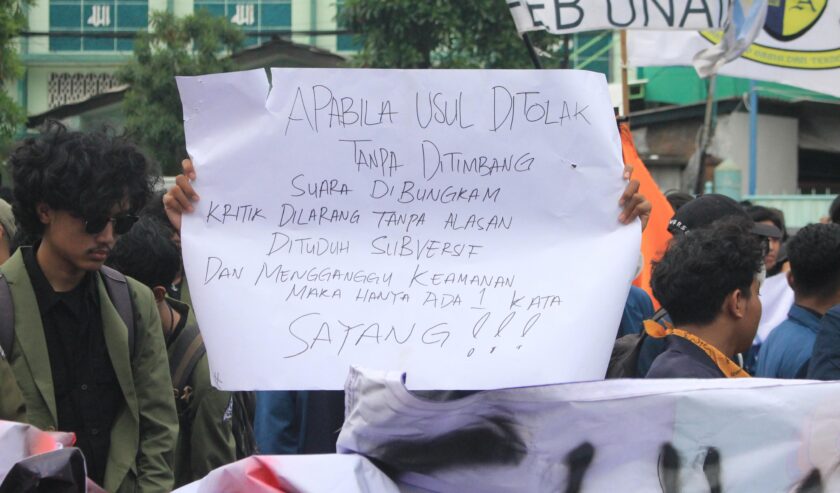 FEB UNAI
APABILA USUL DITOLAK
TANPA DITIMBANG
SUARA DIBUNGKAM
KRITIK DILARANG TANPA ALASAN
DITUDUH SUBVERSIF
DAN MENGGANGGU KEAMANAN
MAKA HANYA ADA 1 KATA
SAYANG !!!